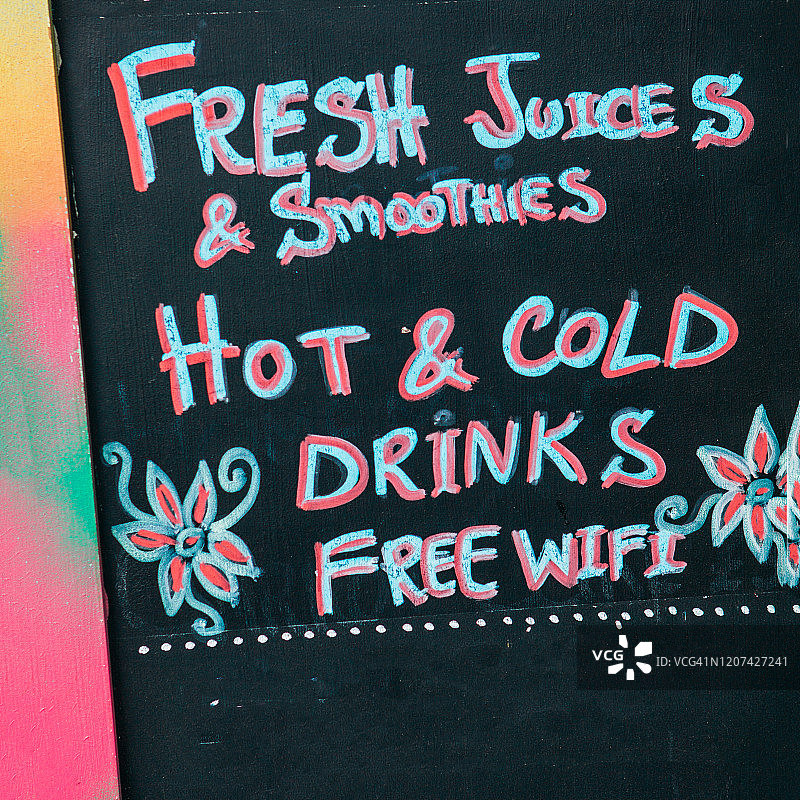 FRESH JUICES
& SMOOTHIES
HOT & COLD
DRINKS
FREE WIFI
VCG ID: VCG41N1207427241